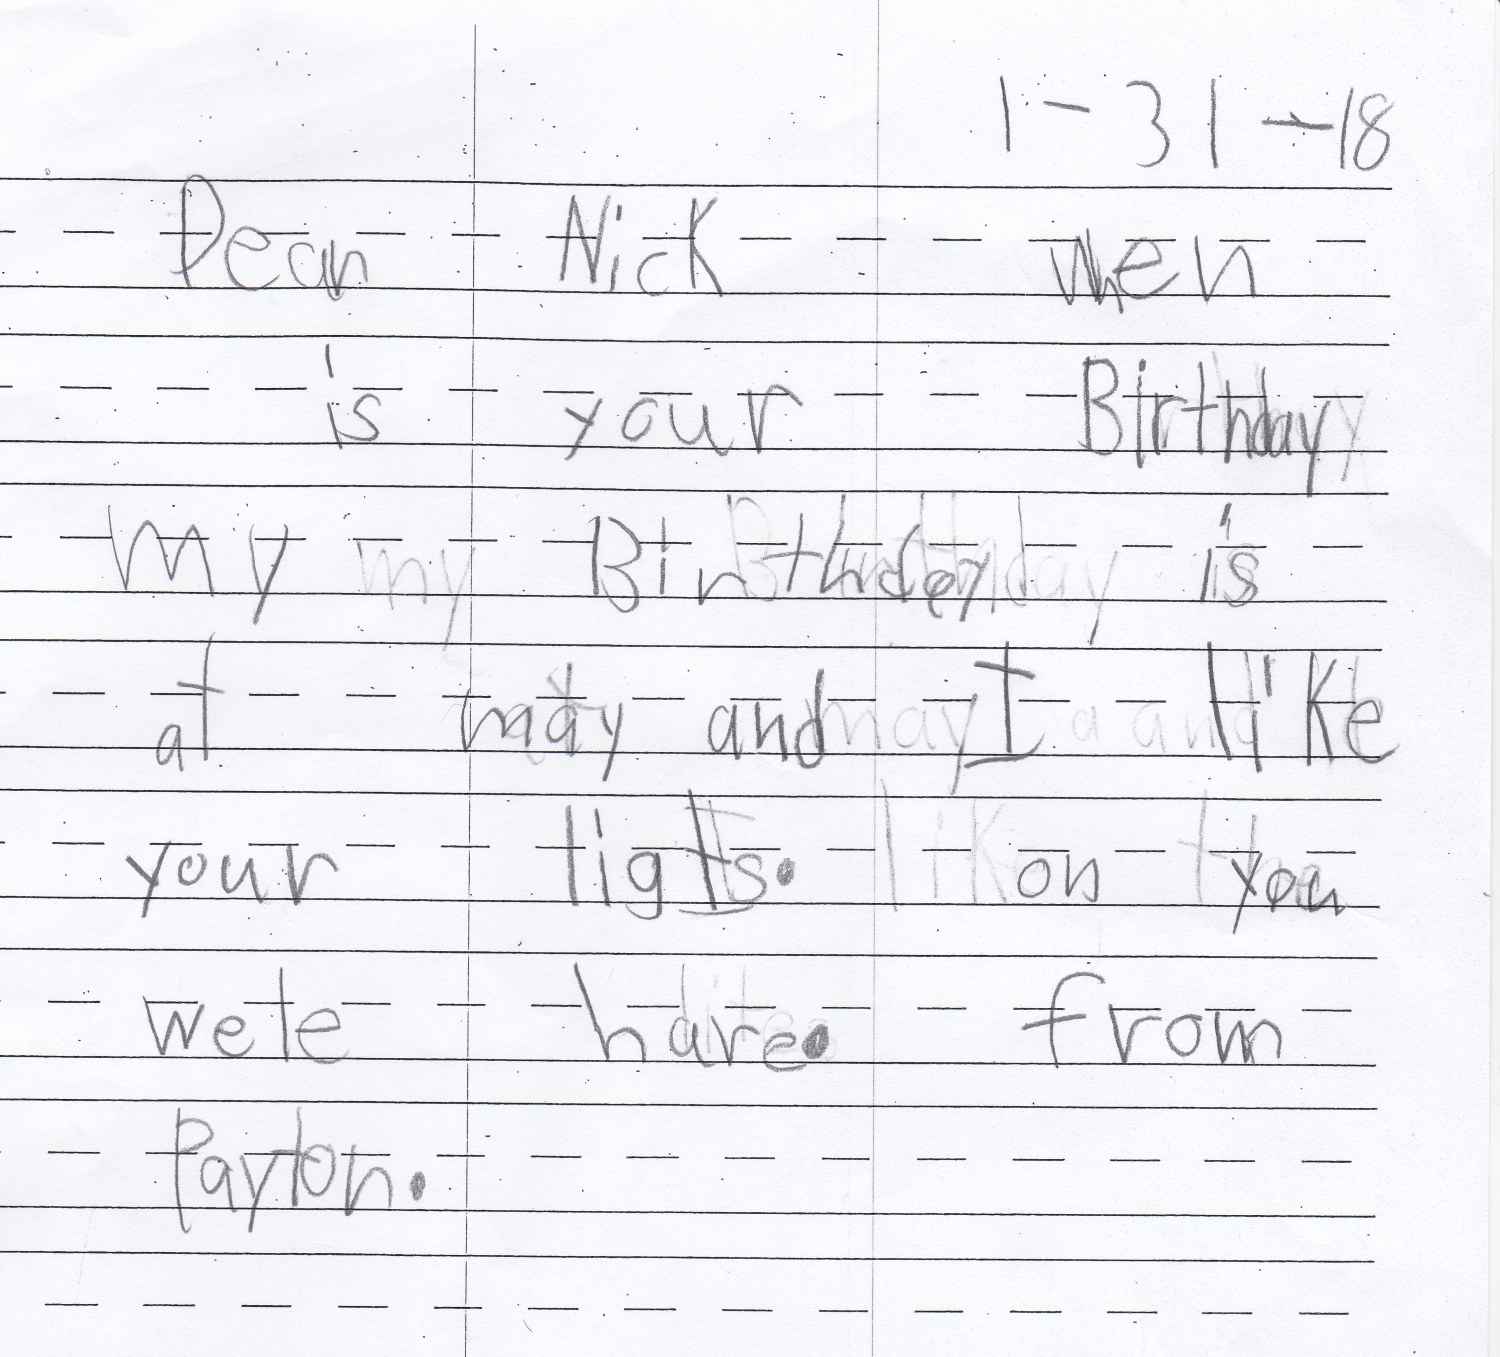 1-31-18
Dear Nick when
is your Birthday
My Birthday is
at may and I like
your ligts. on you
wete hare. from
Payton.